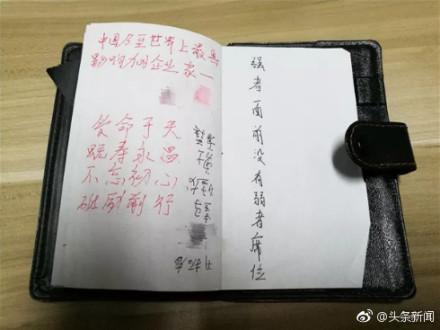 中国乃至世界上最具
影响力的企业家一
受命于天
既寿永昌
不忘初心
砥砺前行
强者面前没有弱者席位
@头条新闻